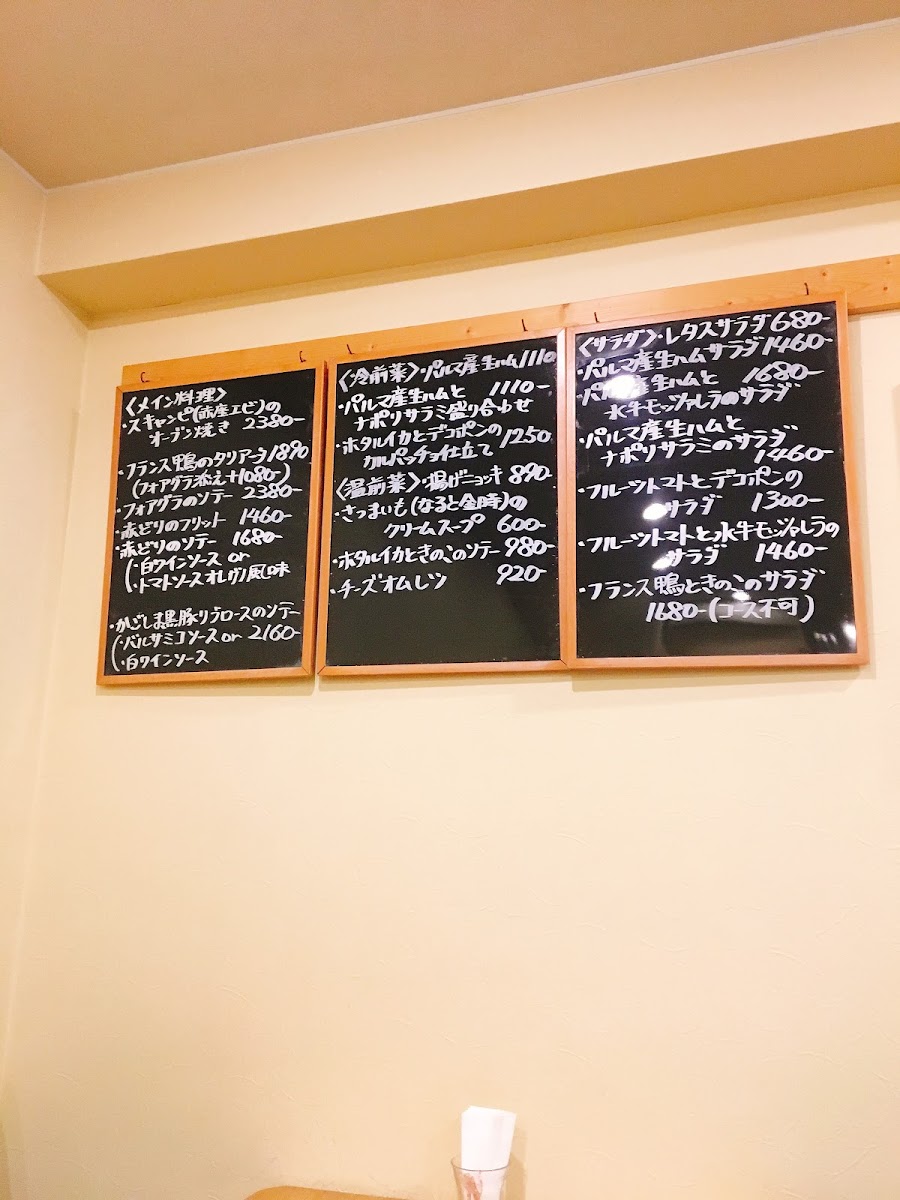 〈メイン料理〉
・スキャンピ(赤座エビ)の
オーブン焼き 2380-
・フランス鴨のタリアータ1890
(フォアグラ添え+1080-)
・フォアグラのソテー 2380-
・赤どりのフリット 1460-
・赤どりのソテー 1680-
(・白ワインソース or
・トマトソースオレガノ風味
・かごしま黒豚リブロースのソテー
(・バルサミコソース or 2160-
・白ワインソース
〈冷前菜〉・パルマ産生ハム1110
・パルマ産生ハムと 1110-
ナポリサラミ盛り合わせ
・ホタルイカとデコポンの
カルパッチョ仕立て 1250
〈温前菜〉・揚げニョッキ 890-
・さつまいも(なると金時)の
クリームスープ 600-
・ホタルイカときのこのソテー 980-
・チーズオムレツ 920-
〈サラダ〉・レタスサラダ680-
・パルマ産生ハムサラダ1460-
・パルマ産生ハムと 1680-
水牛モッツァレラのサラダ
・パルマ産生ハムと
ナポリサラミのサラダ 1460-
・フルーツトマトとデコポンの
サラダ 1300-
・フルーツトマトと水牛モッツァレラの
サラダ 1460-
・フランス鴨ときのこのサラダ
1680-(コース不可)